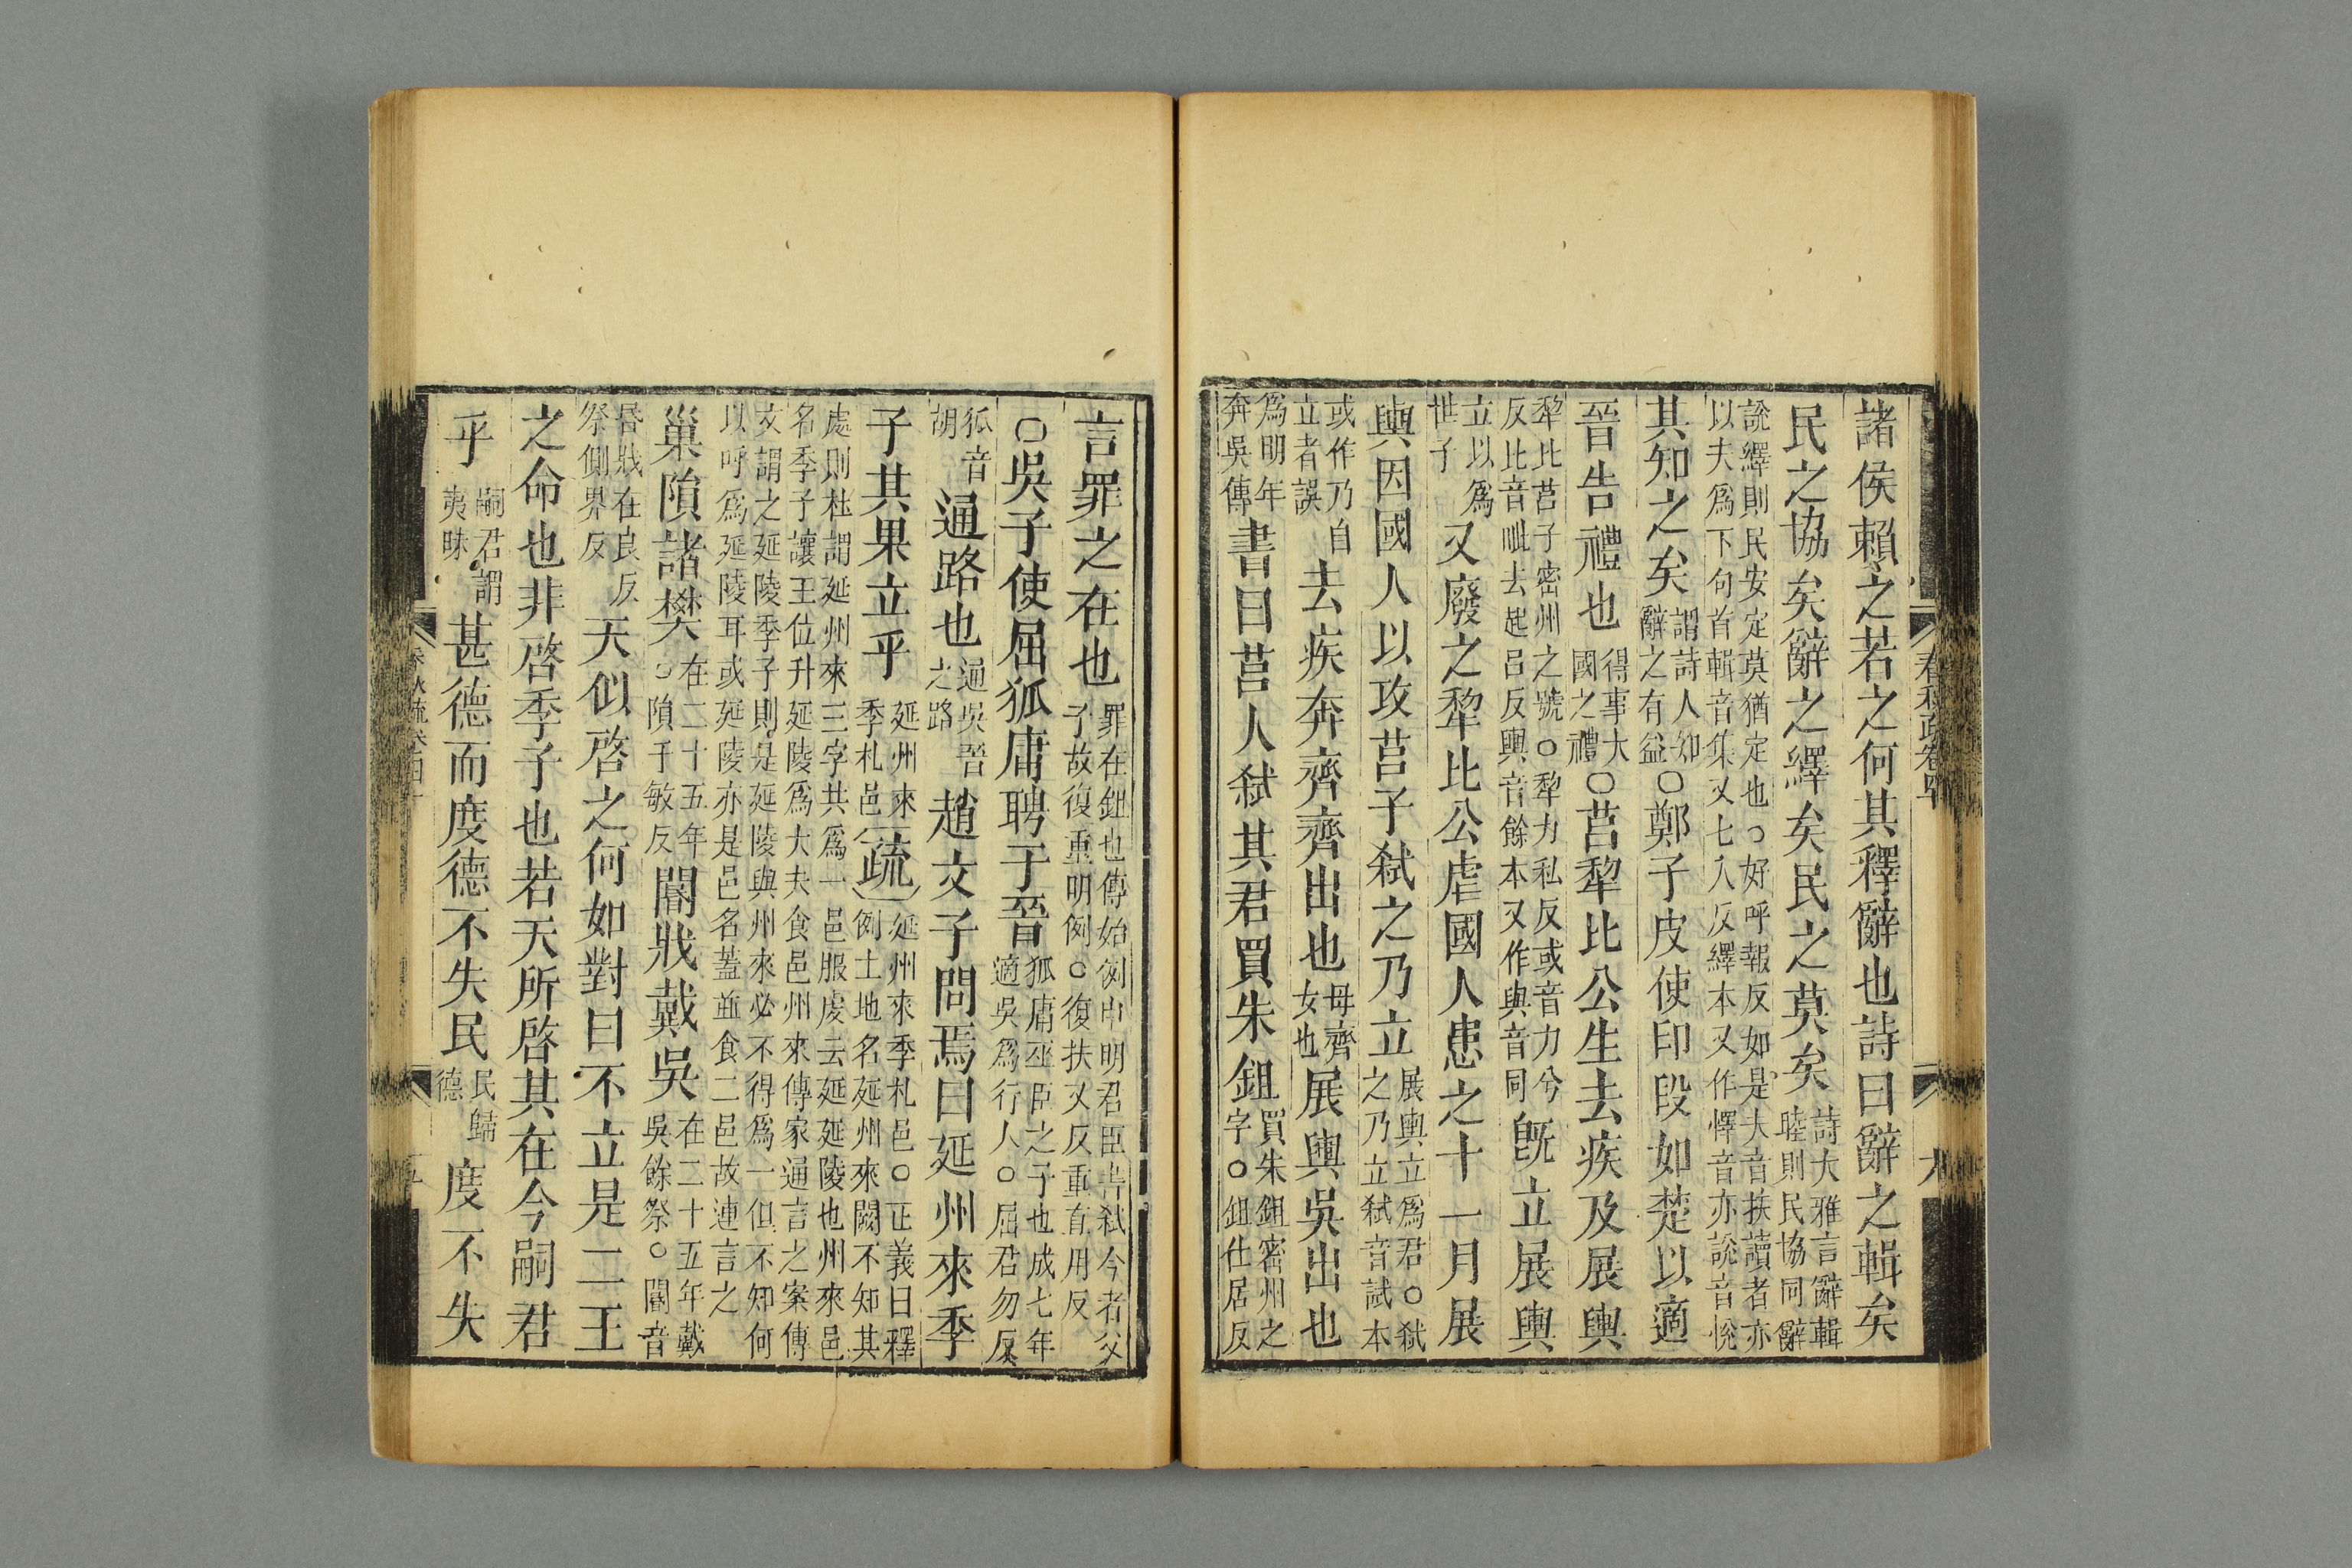 諸侯賴之若之何其釋辭也詩曰辭之輯矣
民之協矣辭之繹矣民之莫矣詩大雅言辭輯睦則民協同辭
說繹則民安定莫猶定也○好呼報反如是夫音扶讀者亦以夫爲下句首輯音集又七入反繹本又作懌音亦說音悅
其知之矣謂詩人知辭之有益○鄭子皮使印段如楚以適
晉告禮也得事大國之禮○莒犂比公生去疾及展輿
犂比莒子密州之號○犂力私反或音力兮反比音毗去起呂反輿音餘本又作與音同旣立展輿
立以爲世子又廢之犂比公虐國人患之十一月展
輿因國人以攻莒子弑之乃立展輿立爲君○弑之乃立弑音試本
或作乃自立者誤去疾奔齊齊出也母齊女也展輿吳出也
爲明年奔吳傳書曰莒人弑其君買朱鉏買朱鉏密州之字○鉏仕居反
言罪之在也罪在鉏也傳始例申明君臣書弑今者父子故復重明例○復扶又反重直用反
○吳子使屈狐庸聘于晉狐庸巫臣之子也成七年適吳爲行人○屈君勿反
狐音胡通路也通吳晉之路趙文子問焉曰延州來季
子其果立乎延州來季札邑疏延州來季札邑○正義曰釋例土地名延州來闕不知其
處則杜謂延州來三字共爲一邑服虔云延延陵也州來邑名季子讓王位升延陵爲大夫食邑州來傳家通言之案傳
文謂之延陵季子則是延陵與州來必不得爲一但不知何以呼爲延陵耳或延陵亦是邑名蓋並食二邑故連言之
巢隕諸樊在二十五年○隕于敏反閽戕戴吳在二十五年戴吳餘祭○閽音
昬戕在良反祭側界反天似啓之何如對曰不立是二王
之命也非啓季子也若天所啓其在今嗣君
乎嗣君謂夷昧甚德而度德不失民民歸德度不失